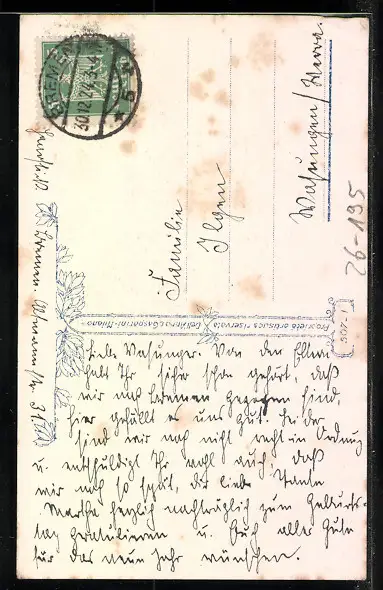 BREMEN
30.12.24.3-4 N
* 5 f
Familie
Ilgen
Wasungen/Werra.
26-195
Proprietà artistica riservata Dell'Anna & Gasparini-Milano
507-1
Bremen,
Liebe Wasunger. Von den Eltern
habt Ihr sicher schon gehört, daß
wir nach Bremen gezogen sind,
hier gefällt es uns gut. Leider
sind wir noch nicht recht in Ordnung
u. entschuldigt Ihr wohl auch, daß
wir noch so spät, die liebe Tante
Martha herzlich nachträglich zum Geburts-
tag gratulieren u. Euch alles Gute
für das neue Jahr wünschen.